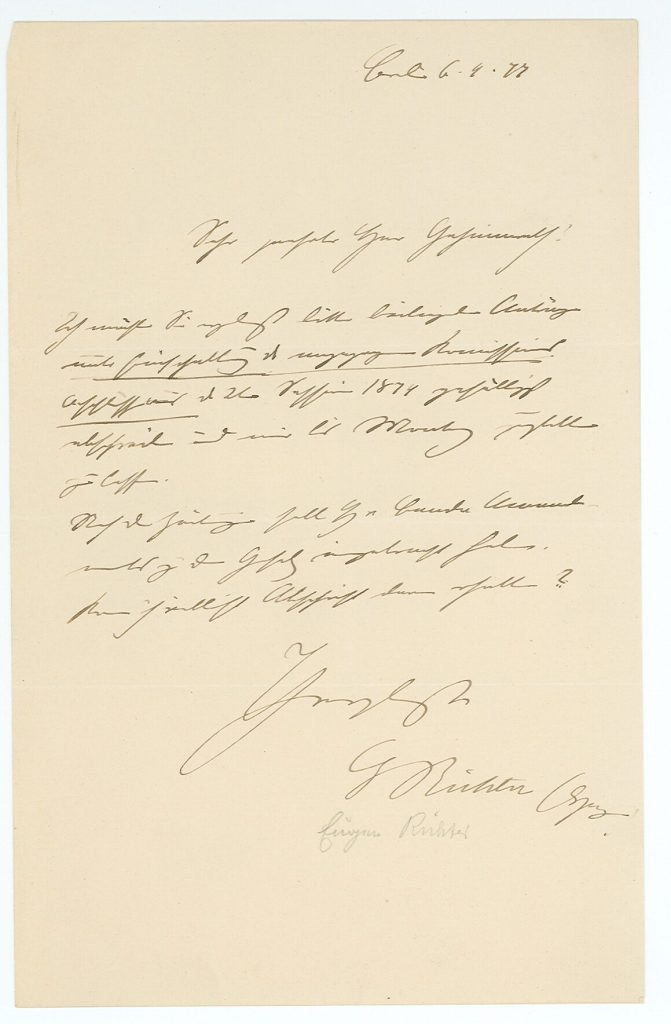 Berlin 6. 4. 77
Sehr geehrter Herr Geheimrath!
Ich möchte Sie ergebenst bitten beiliegenden Antrag
unter Einschaltung der Kommissions
der 2ten Session 1874 gefälligst
abschreiben und mir bis Montag zustellen
zu lassen.
Nach den Zeitungen soll Herr
zu dem Gesetz eingebracht haben.
Kann ich vielleicht Abschrift davon erhalten?
Ergebenst
E Richter (Hagen)
Eugen Richter